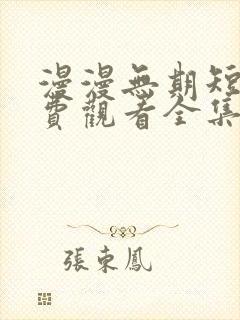 漫漫無期短
費觀看全集
張東鳳